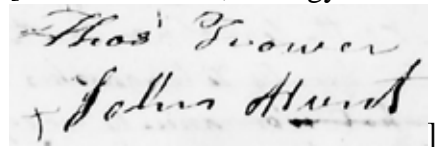 Thos Trower
+ John Hunt ]